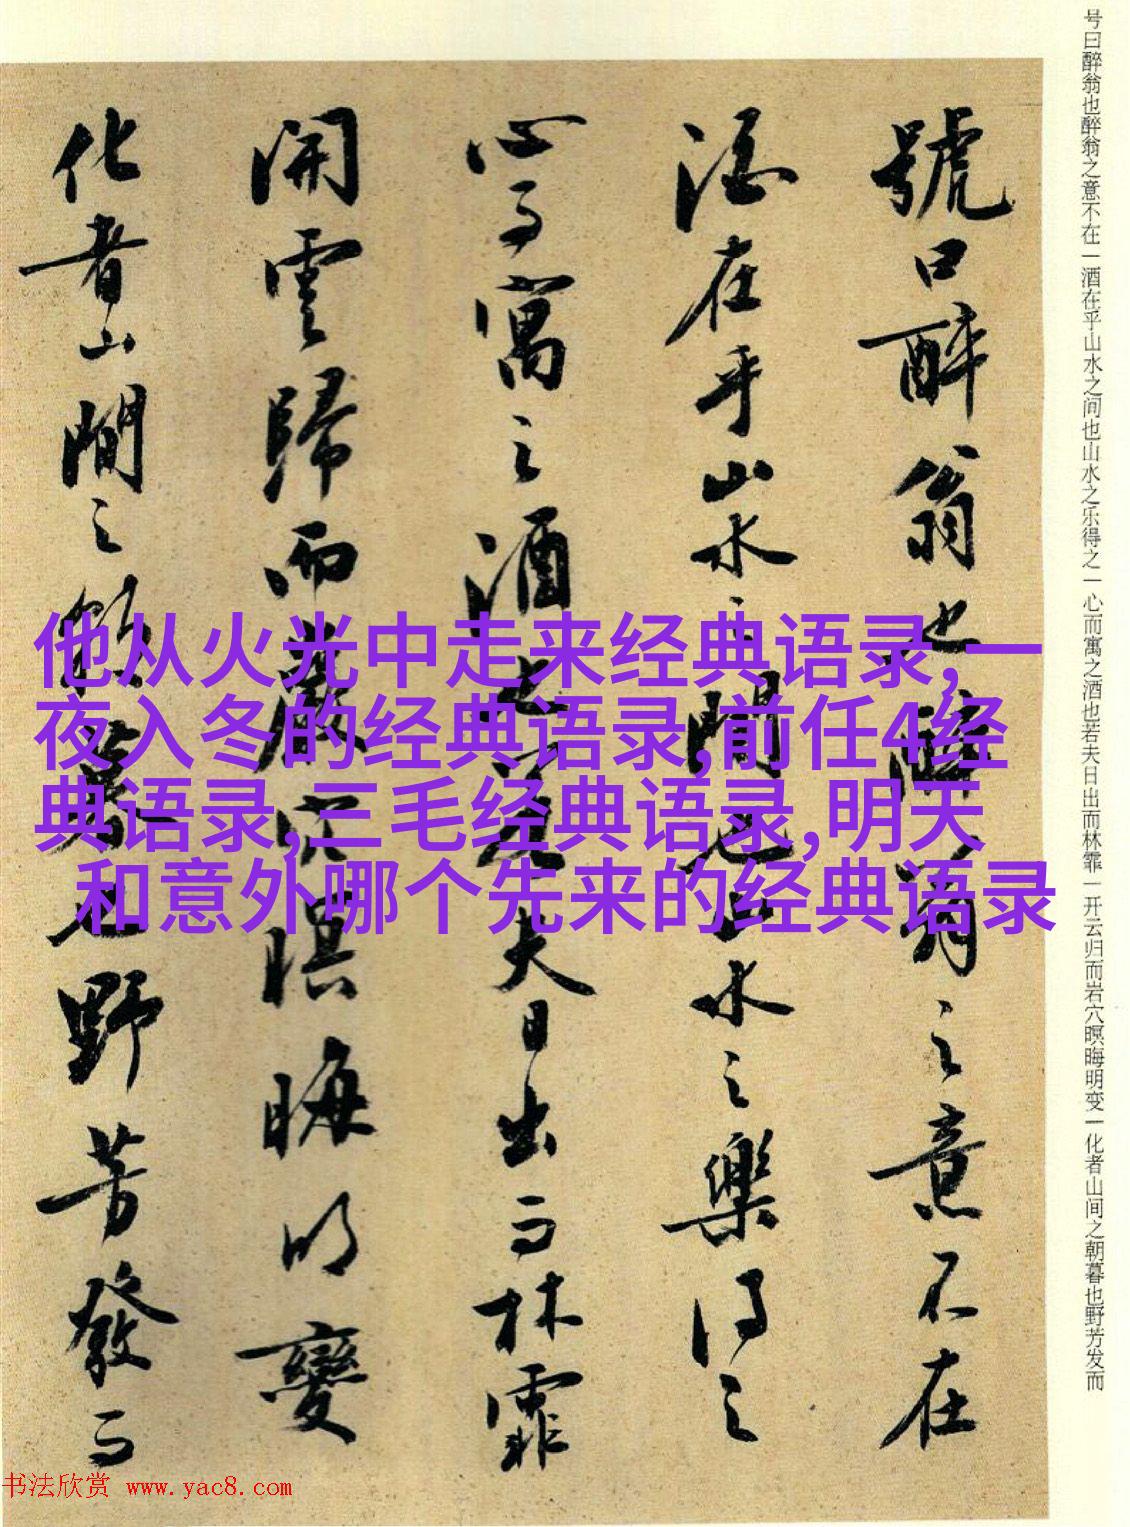 号曰醉翁也醉翁之意不在一酒在乎山水之间也山水之乐得之一心而寓之酒也若夫日出而林霏一开云归而岩穴暝晦明变一化者山间之朝暮也野芳发而
號曰醉翁也醉翁之意不在
酒在乎山水之間也山水之樂得之
心而寓之酒也若夫日出而林霏
開雲歸而巖穴暝晦明變
化者山間之朝暮也野芳發而
他从火光中走来经典语录,一
夜入冬的经典语录,前任4经
典语录,三毛经典语录,明天
和意外哪个先来的经典语录
书法欣赏 www.yac8.com